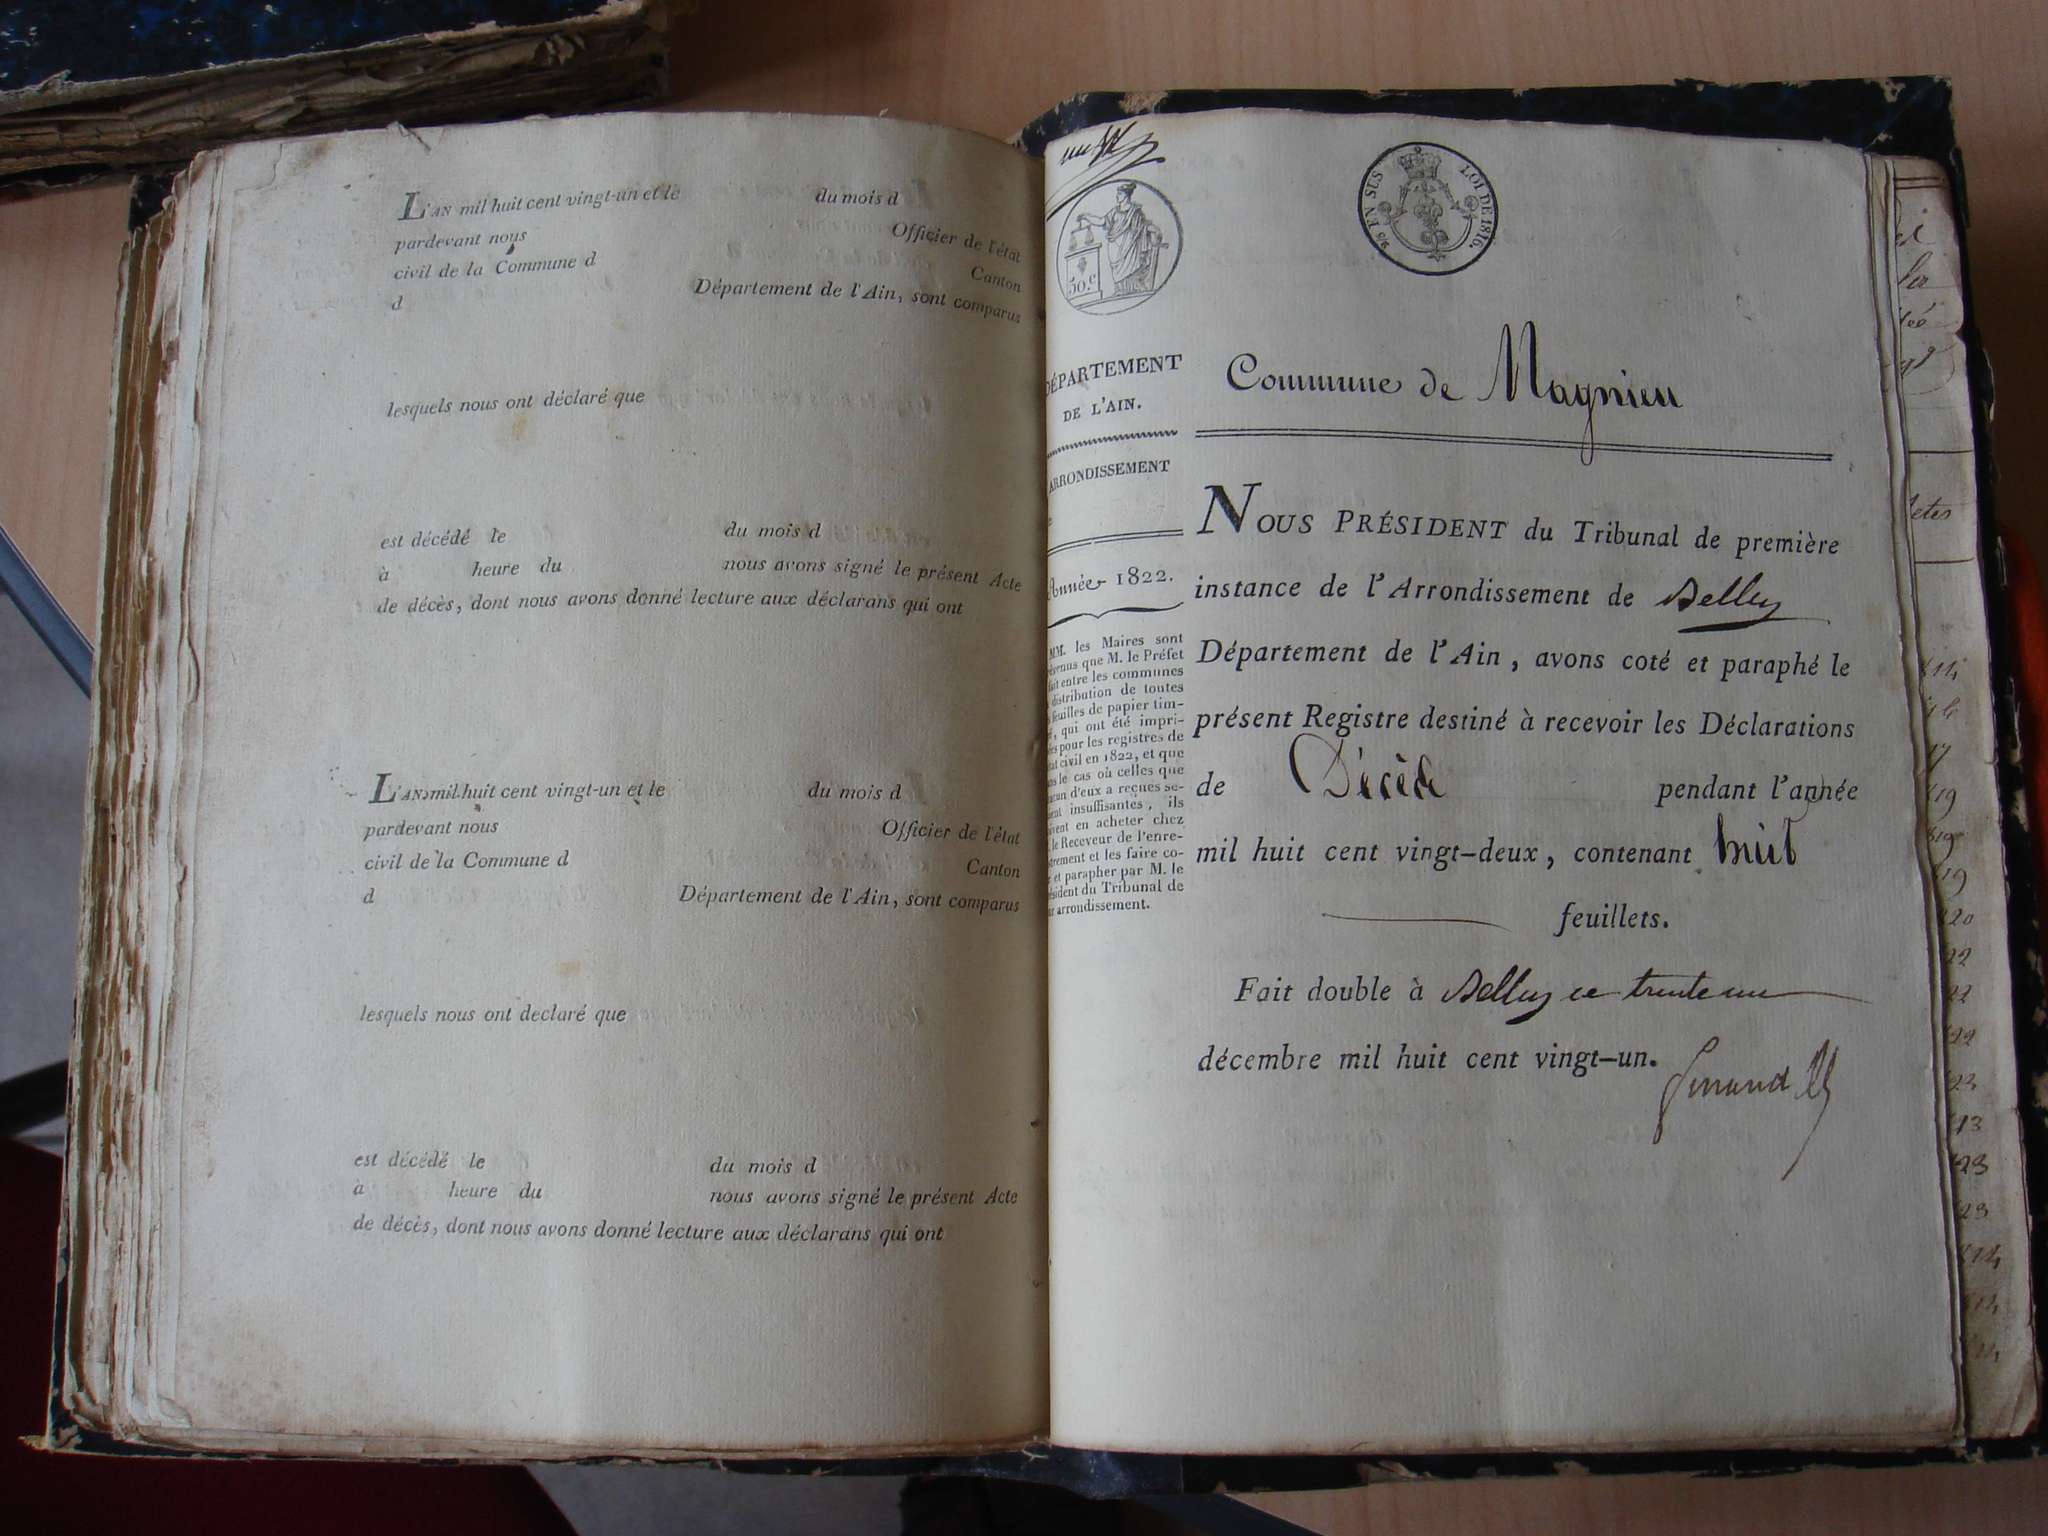 L'AN mil huit cent vingt-un et le du mois d
pardevant nous Officier de l'état
civil de la Commune d Canton
d Département de l'Ain, sont comparus
lesquels nous ont déclaré que
est décédé le du mois d
à heure du nous avons signé le présent Acte
de décès, dont nous avons donné lecture aux déclarans qui ont
L'AN mil huit cent vingt-un et le du mois d
pardevant nous Officier de l'état
civil de la Commune d Canton
d Département de l'Ain, sont comparus
lesquels nous ont declaré que
est décédé le du mois d
à heure du nous avons signé le présent Acte
de décès, dont nous avons donné lecture aux déclarans qui ont
50.c
EN SUS LOI DE 1816.
DÉPARTEMENT
DE L'AIN.
ARRONDISSEMENT
Année 1822.
MM. les Maires sont
que M. le Préfet
entre les communes
distribution de toutes
feuilles de papier tim-
, qui ont été impri-
pour les registres de
civil en 1822, et que
le cas où celles que
d'eux a reçues se-
insuffisantes, ils
en acheter chez
le Receveur de l'enre-
et les faire co-
et parapher par M. le
du Tribunal de
arrondissement.
Commune de Magnieu
NOUS PRÉSIDENT du Tribunal de première
instance de l'Arrondissement de Belley
Département de l'Ain, avons coté et paraphé le
présent Registre destiné à recevoir les Déclarations
de Décès pendant l'année
mil huit cent vingt-deux, contenant huit
feuillets.
Fait double à Belley ce trente un
décembre mil huit cent vingt-un.